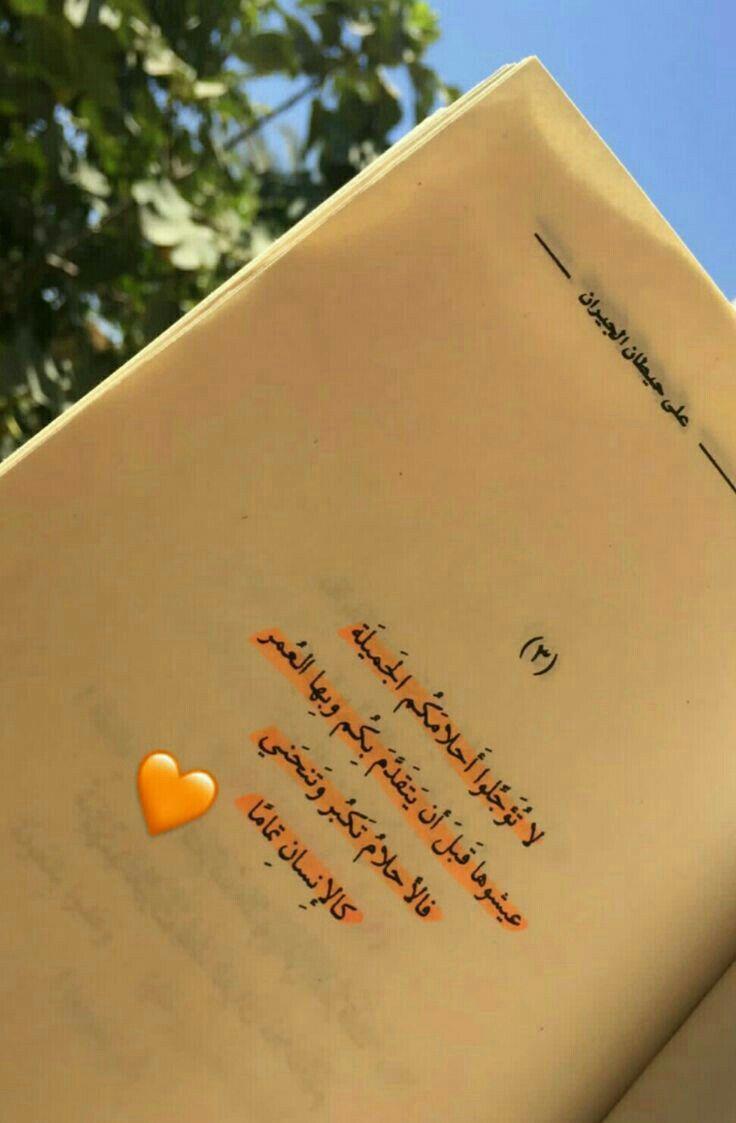 على حيطان الجيران
(٣)
لا تُؤجِّلوا أَحلامَكُم الجَميلَة
عيشوها قَبلَ أَن يَتقدَّمَ بِكُم وبِها العُمر
فالأحلامُ تَكبُر وَتَنحَني
كالإِنسانِ تمامًا